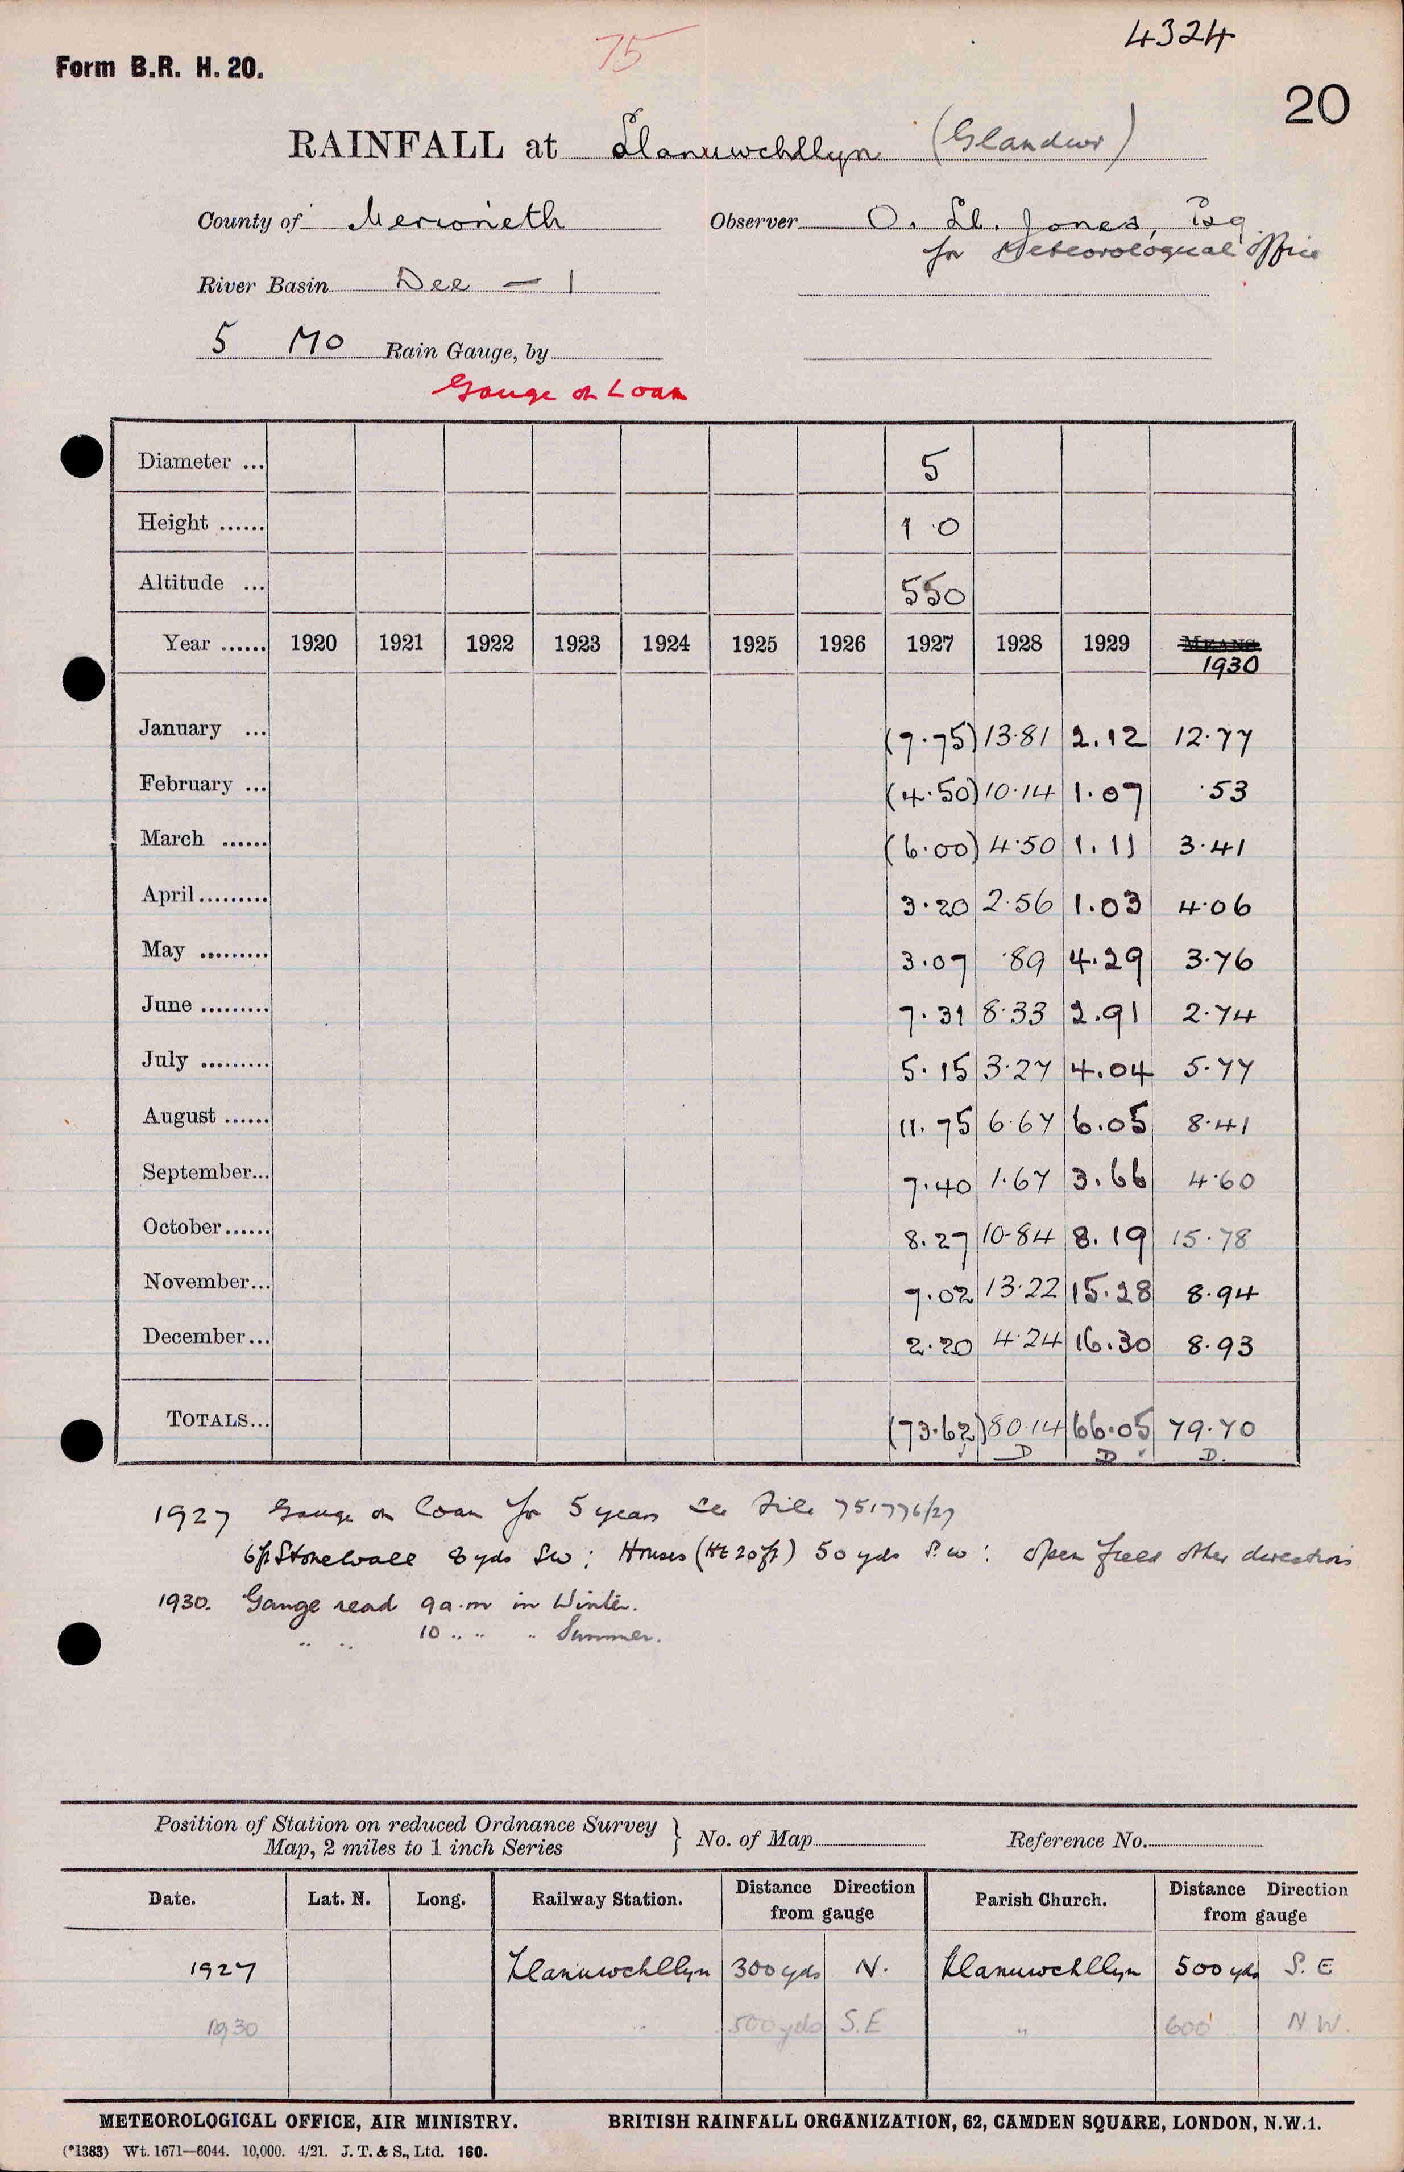 4324
75
Form B.R. H. 20.
20
RAINFALL at Llanuwchllyn (Glandwr)
County of Merioneth Observer O. Ll. Jones, Esq
for Meteorological Office
River Basin Dee — 1
5 MO Rain Gauge, by
Gauge on Loan
Diameter ... 5
Height ...... 1 0
Altitude ... 550
Year ...... 1920 1921 1922 1923 1924 1925 1926 1927 1928 1929 MEANS 1930
January ... (7.75) 13.81 2.12 12.77
February ... (4.50) 10.14 1.07 .53
March ...... (6.00) 4.50 1.11 3.41
April ......... 3.20 2.56 1.03 4.06
May ......... 3.07 .89 4.29 3.76
June ......... 7.31 8.33 2.91 2.74
July ......... 5.15 3.27 4.04 5.77
August ...... 11.75 6.67 6.05 8.41
September... 7.40 1.67 3.66 4.60
October...... 8.27 10.84 8.19 15.78
November... 7.02 13.22 15.28 8.94
December... 2.20 4.24 16.30 8.93
TOTALS... (73.62) 80.14 66.05 79.70
D D D.
1927 Gauge on loan for 5 years See File 751776/27
6ft Stonewall 8 yds SW; Houses (Ht 20ft) 50 yds S.W: open field other directions
1930. Gauge read 9 a.m in Winter.
" " 10 " " " Summer.
Position of Station on reduced Ordnance Survey
Map, 2 miles to 1 inch Series } No. of Map Reference No.
Date. Lat. N. Long. Railway Station. Distance Direction from gauge Parish Church. Distance Direction from gauge
1927 Llanuwchllyn 300 yds N. Llanuwchllyn 500 yds S. E
1930 " 500 yds S.E " 600 " N W.
METEOROLOGICAL OFFICE, AIR MINISTRY. BRITISH RAINFALL ORGANIZATION, 62, CAMDEN SQUARE, LONDON, N.W.1.
(*1383) Wt. 1671—6044. 10,000. 4/21. J. T. & S., Ltd. 160.